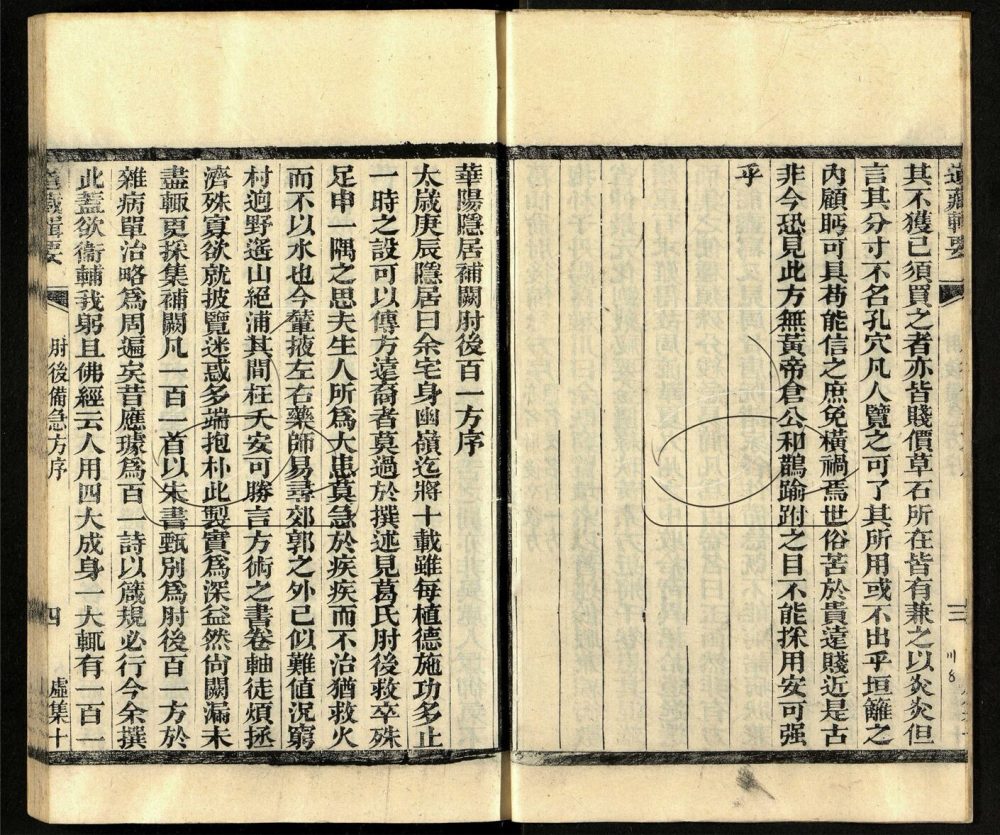 道藏輯要
三
其不獲已須買之者亦皆賤價草石所在皆有兼之以灸灸但
言其分寸不名孔穴凡人覽之可了其所用或不出乎垣籬之
內顧眄可具苟能信之庶免橫禍焉世俗苦於貴遠賤近是古
非今恐見此方無黃帝倉公和鵲踰跗之目不能採用安可强
乎
華陽隱居補闕肘後百一方序
太歲庚辰隱居曰余宅身幽嶺迄將十載雖每植德施功多止
一時之設可以傳方遠裔者莫過於撰述見葛氏肘後救卒殊
足申一隅之思夫生人所爲大患莫急於疾疾而不治猶救火
而不以水也今輦掖左右藥師易尋郊郭之外已似難值況窮
村迥野遙山絕浦其間枉夭安可勝言方術之書卷軸徒煩拯
濟殊寡欲就披覽迷惑多端抱朴此製實爲深益然尙闕漏未
盡輒更採集補闕凡一百一首以朱書甄別爲肘後百一方於
雜病單治略爲周遍矣昔應璩爲百一詩以箴規必行今余撰
此蓋欲衞輔我躬且佛經云人用四大成身一大輒有一百一
道藏輯要
肘後備急方序
四
虛集十